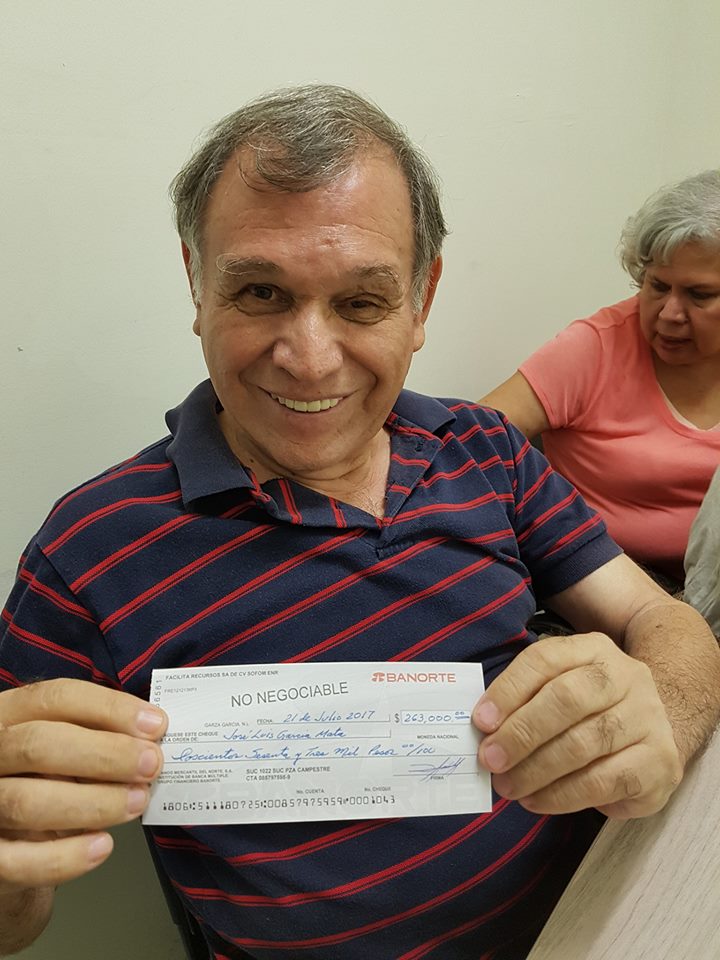 FACILITA RECURSOS SA DE CV SOFOM ENR
BANORTE
NO NEGOCIABLE
GARZA GARCIA, N.L. FECHA. 21 de Julio 2017 $ 263,000.00
PAGUESE ESTE CHEQUE A LA ORDEN DE: Jose Luis Garcia Mata MONEDA NACIONAL
Doscientos Sesenta y Tres Mil Pesos 00/100
BANCO MERCANTIL DEL NORTE, S.A.
INSTITUCIÓN DE BANCA MÚLTIPLE
GRUPO FINANCIERO BANORTE
SUC 1022 SUC PZA CAMPESTRE
FIRMA
No. CUENTA No. CHEQUE